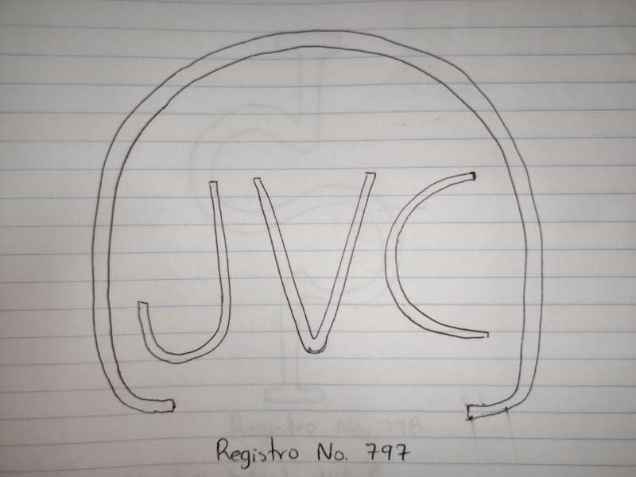 JVC
Registro No. 797